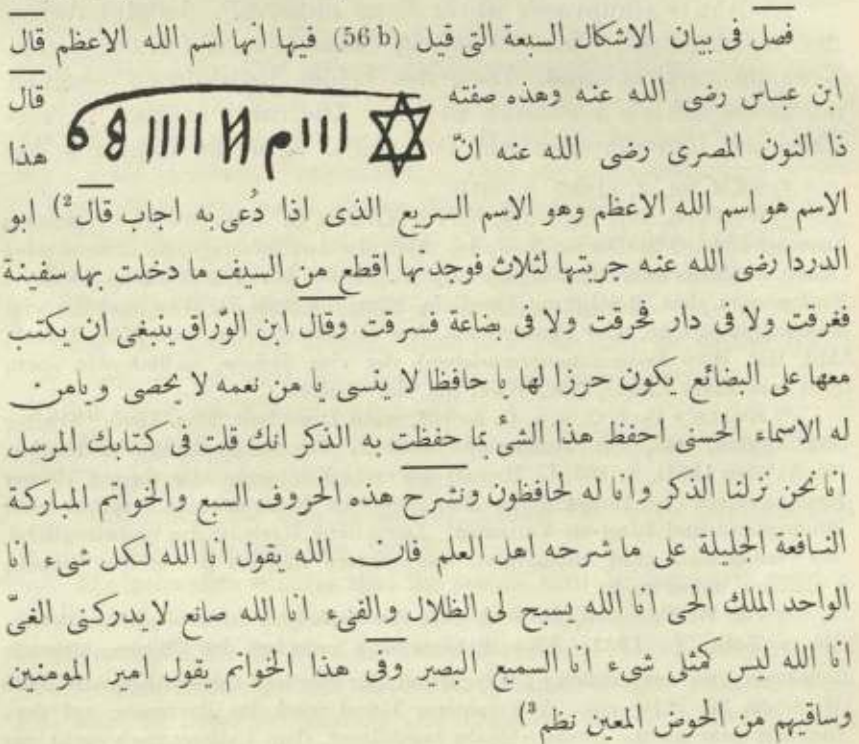 فصل فى بيان الاشكال السبعة التى قيل (56 b) فيها انها اسم الله الاعظم قال
ابن عباس رضى الله عنه وهذه صفته قال
ذا النون المصرى رضى الله عنه انّ هذا
الاسم هو اسم الله الاعظم وهو الاسم السريع الذى اذا دُعى به اجاب قال ²) ابو
الدردا رضى الله عنه جربتها لثلاث فوجدتها اقطع من السيف ما دخلت بها سفينة
فغرقت ولا فى دار فحرقت ولا فى بضاعة فسرقت وقال ابن الوّراق ينبغى ان يكتب
معها على البضائع يكون حرزا لها يا حافظا لا ينسى يا من نعمه لا يحصى ويامن
له الاسماء الحسنى احفظ هذا الشئ بما حفظت به الذكر انك قلت فى كتابك المرسل
انا نحن نزلنا الذكر وانا له لحافظون ونشرح هذه الحروف السبع والخواتم المباركة
النافعة الجليلة على ما شرحه اهل العلم فان الله يقول انا الله لكل شىء انا
الواحد الملك الحى انا الله يسبح لى الظلال والفىء انا الله صانع لا يدركنى الغىّ
انا الله ليس كمثلى شىء انا السميع البصير وفى هذا الخواتم يقول امير المومنين
وساقيهم من الحوض المعين نظم ³)